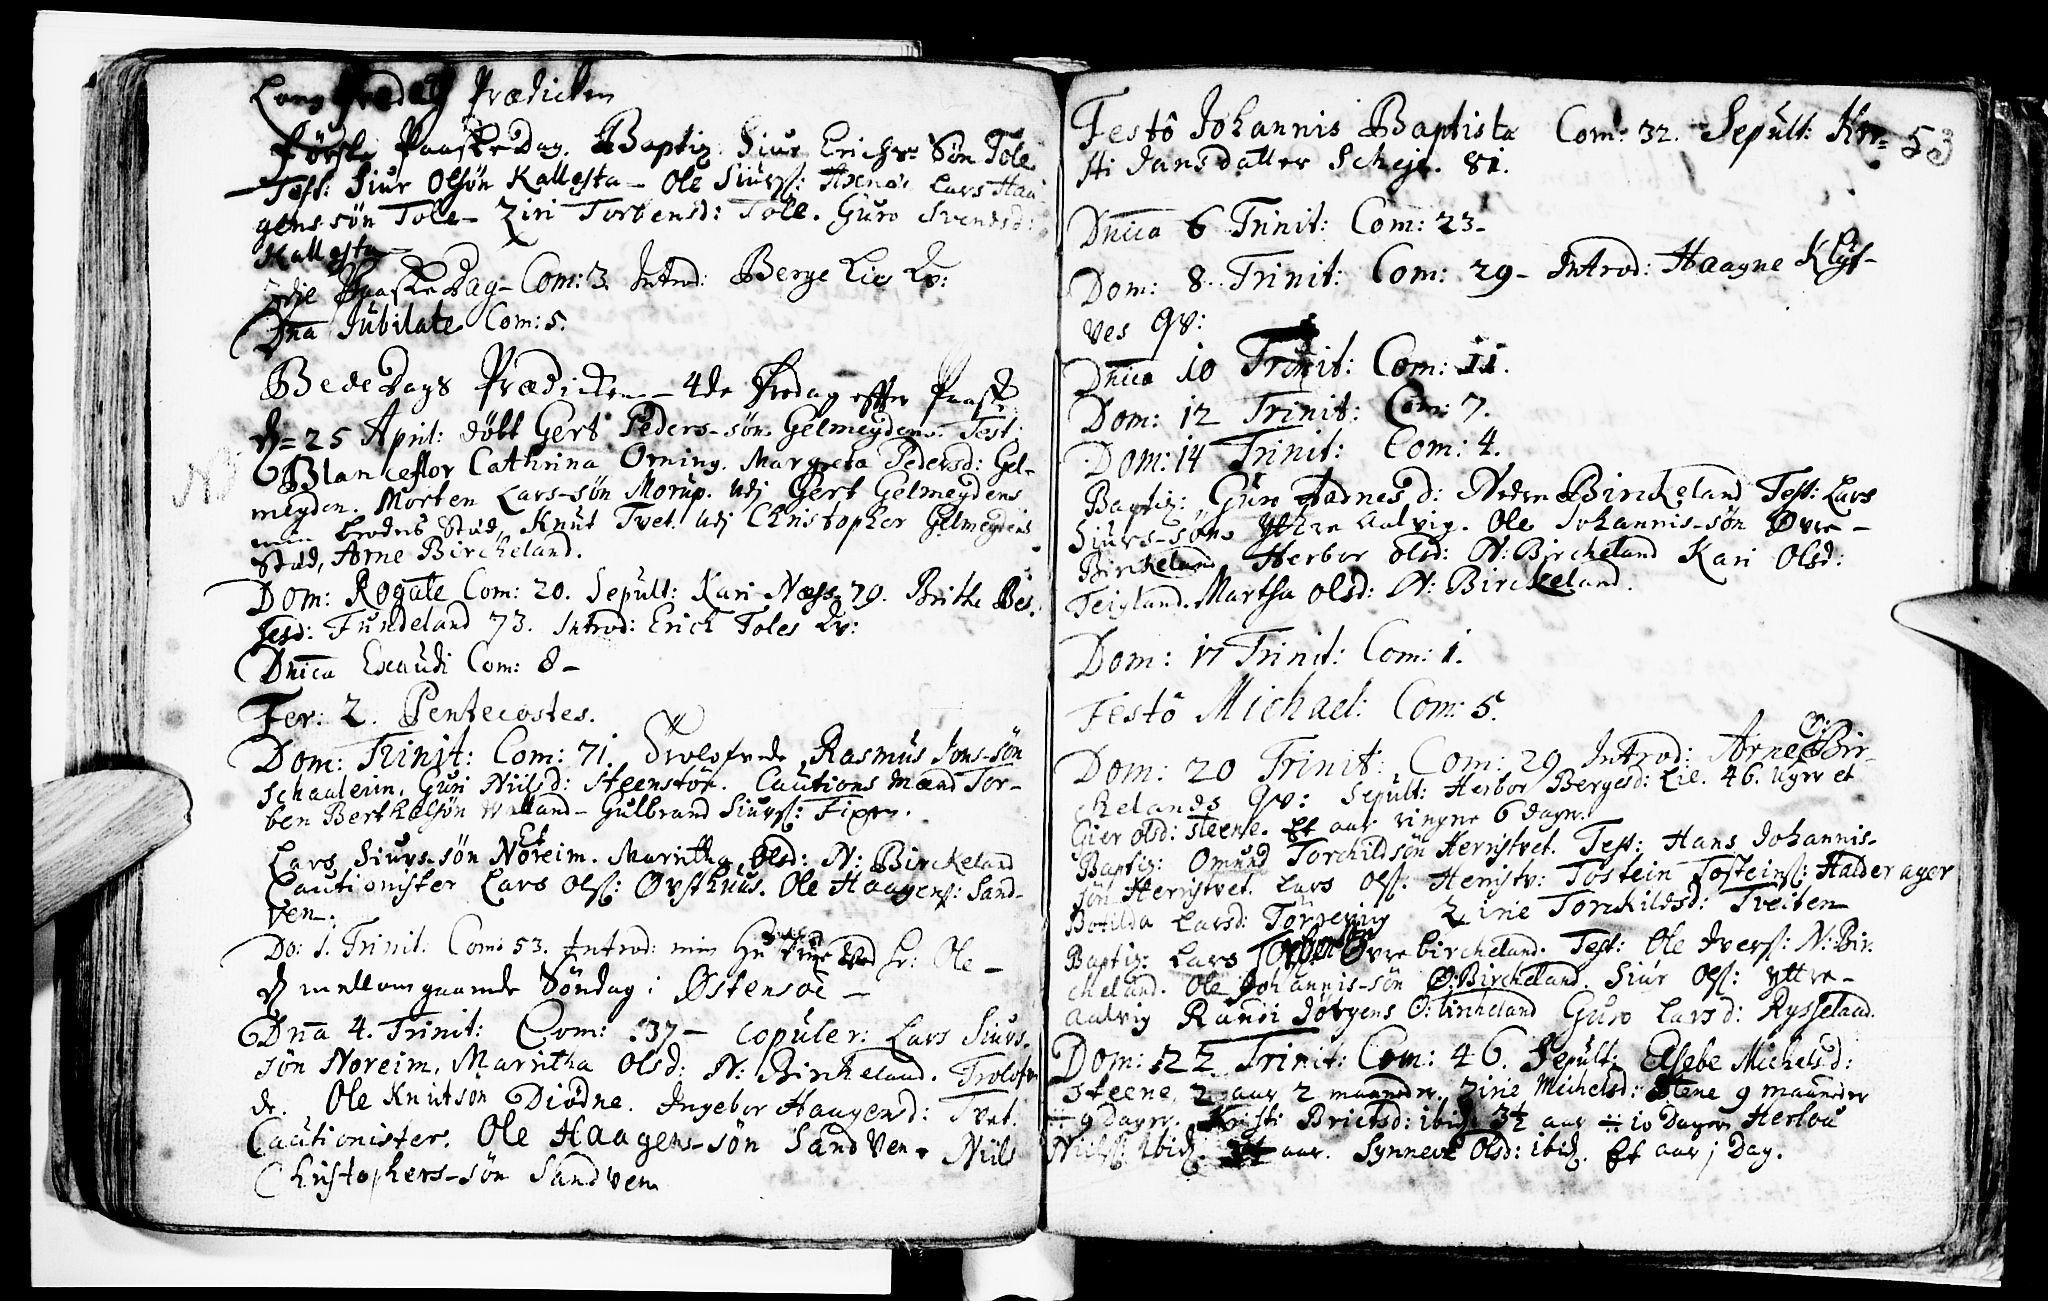 Lang Fredag Prædicken
Første PaaskeDag. Baptiz. Siur Erichs Søn Tole
Test: Siur Olsøn Kallesta - Ole Siurs: Lars Haa
gens-søn Tole - Ziri Torbensd: Tole. Guro Svendsd:
Kallesta -
3die PaaskeDag - Com: 3. Introd: Berge Lie Qv:
Dna Jubilate Com: 5.
BedeDags Prædicken - 4de Fredag effter Paaske
d = 25 April: døbt Gert Peders-søn Gelmeydens. Test:
NB Blanceflor Cathrina Orning. Margreta Pedersd: Gel-
meyden. Morten Lars-søn Morup. udj Gert Gelmeydens
min broders Stæd, Knut Tvet udj Christopher Gelmeydens
Stæd, Arne Birckeland.
Dom: Rogate Com: 20. Sepult: Kari Næss 79. Britha Bes-
sesd: Fundeland 73. Introd: Erich Toles Qv:
Dnica Exaudi Com: 8 -
Fer: 2. Pentecostes.
Dom: Trinit: Com: 71. Trolofvede Rasmus Jons-søn
Schaaleim, Guri Niilsd: Steenstøe. Cautions Mænd Tor-
ben Berthelsøn Valland - Gulbrand Siurs: Fixen.
Et
Lars Siurs-søn Noreim. Maritha Olsd: N: Birckeland
Cautionister Lars Ols: Øvsthuus. Ole Haagens: Sand-
ven -.
Do: 1. Trinit: Com: 53. Introd: min Hustrue ved Hr: Ole -
d mellomgaaende Søndag i Østensøe -
Dna 4. Trinit: Com: 37 - copuler: Lars Siurs-
søn Noreim, Maritha Olsd: N: Birckeland. Trolofve
de. Ole Knutsøn Diødne. Ingebor Haagensd: Tvet.
Cautionister. Ole Haagens-søn Sandven. Niils
Christophers-søn Sandven
53
Festô Johannis Baptista Com: 32. Sepult: Kir-
sti Jansdatter Scheje. 81.
Dnica 6 Trinit: Com: 23 -
Dom: 8. Trinit: Com: 29 - Introd: Haagne Klyf-
ves qv:
Dnica 10 Trinit: Com: 11.
Dom: 12 Trinit: Com: 7.
Dom: 14 Trinit: Com: 4.
Baptiz: Guro Aadnesd: Nedre Birckeland Test: Lars
Siurs-søn Yttre Aalvig. Ole Johannis-søn Øvre -
Birckeland Herbor Olsd: N: Birckeland Kari Olsd:
Teigland. Martha Olsd: N: Birckeland.
Dom: 17 Trinit: Com: 1.
Festô Michael: Com: 5.
Dom: 20 Trinit: Com: 29 Introd: Arne Ø: Bir-
ckelands qv: Sepult: Herbor Bergesd: Lie. 46. uger et
Gier Olsd: Steene. Et aar ringre 6 dager.
Baptiz: Omund Torchildsøn Herristvet. Test: Hans Johannis-
søn Herristvet. Lars Ols: Herristv: Tostein Tosteins: Halderager
Botilda Larsd: Torreving Zirie Torchildsd: Tveiten
Baptiz: Lars Torbens: Øvre birckeland. Test: Ole Ivers: N: Bir-
cheland. Ole Johannis-søn Ø: Bircheland. Siur Ols: yttre -
Aalvig Randi Jørgens Ø: birckeland Guro Larsd: Rysseland.
Dom: 22 Trinit: Com: 46. Sepult: Elsebe Michelsd:
Steene, 2 aar 2 maaneder, Zirie Michelsd: Stene 9 maaneder
÷ 9 Dager. Kristi Brictsd: ibid. 3½ aar ÷ 10 Dager Herlou
Niils: Ibid. aar. Synneve Olsd: ibid. Et aar j Dag.